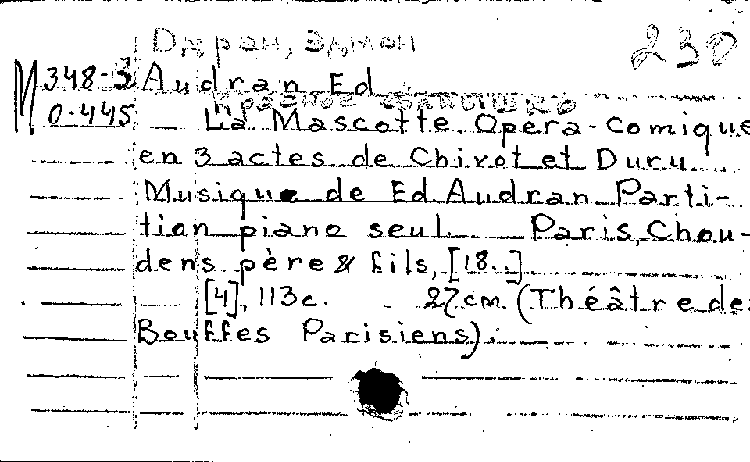 Одран, Эдмон 230
М 348-3 Audran Ed
0-445 Красное солнышко
La Mascotte. Opera-Comique
en 3 actes de Chivot et Duru
Musique de Ed Audran Parti-
tian piano seul. Paris, Chou-
dens père & fils, [18..]
[4], 113c. 27 cm. (Théâtre des
Bouffes Parisiens).